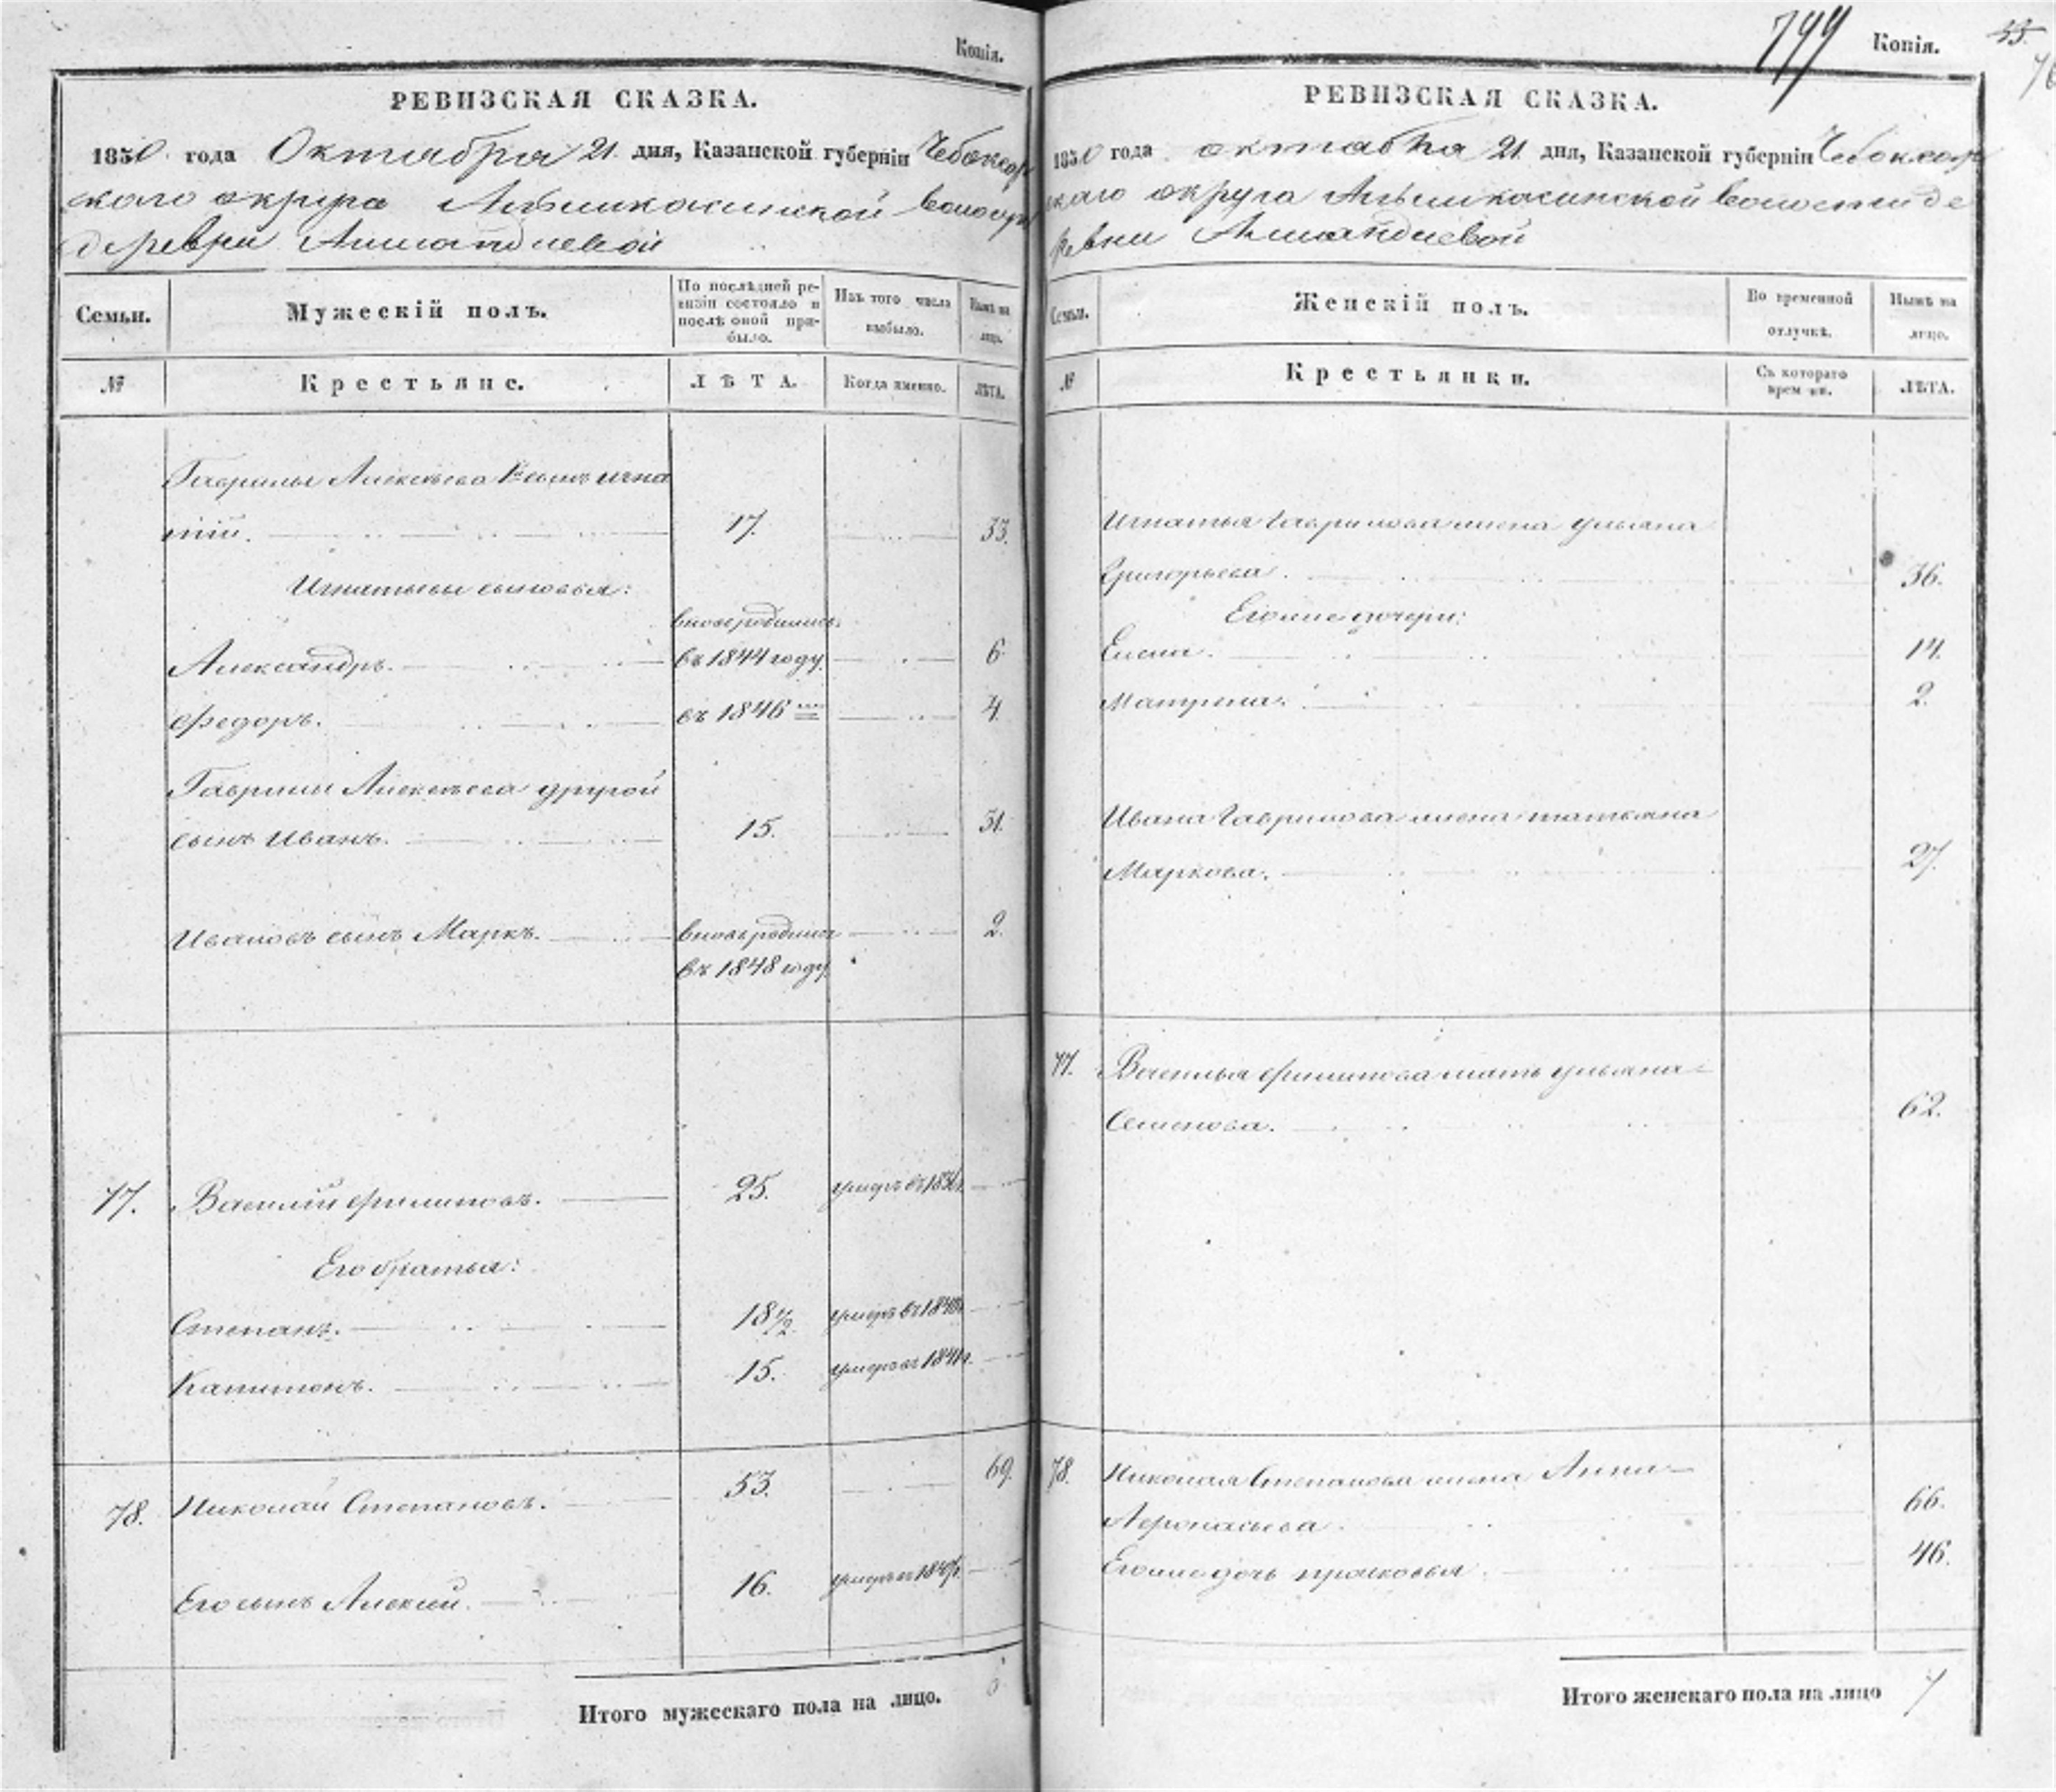 Копія.
РЕВИЗСКАЯ СКАЗКА.
1850 года Октября 21 дня, Казанской губерніи Чебоксар
скаго округа Алымкасинской волости
деревни
Семьи.
Мужескій полъ.
По послѣдней ре-
визіи состояло и
послѣ оной при-
было.
Изъ того числа
выбыло.
Нынѣ на
лицо.
№
Крестьяне.
ЛѢТА.
Когда именно.
ЛѢТА.
Гаврилы Алексѣева 1й сынъ Игна
тій. 17. 33.
Игнатьевы сыновья:
вновь родились
Александръ. въ 1844 году 6
Федоръ. въ 1846 4.
Гаврилы Алексѣева другой
сынъ Иванъ. 15. 31.
Ивановъ сынъ Маркъ. вновь родился 2.
въ 1848 году
77. Василій Филиповъ. 25. умеръ въ
Его братья:
Степанъ. 18 1/2 умеръ въ
Капитонъ. 15. умеръ въ 1841г.
78. Николай Степановъ. 53. 69.
Его сынъ Алексѣй. 16. умеръ въ
Итого мужескаго пола на лицо. 6
799 Копія. 55.
РЕВИЗСКАЯ СКАЗКА.
1850 года октября 21 дня, Казанской губерніи Чебоксар
скаго округа Алымкасинской волости де
ревни
Семьи.
Женскій полъ.
Во временной
отлучкѣ.
Нынѣ на
лицо.
№
Крестьянки.
Съ котораго
времени.
ЛѢТА.
Игнатья Гаврилова жена Ульяна
Григорьева. 36.
Его же дочери:
Елена. 14.
Матрена. 2.
Ивана Гаврилова жена Татьяна
Маркова. 27.
77. Василья Филипова мать Ульяна
Семенова. 62.
78. Николая Степанова жена Анна
Афонасьева. 66.
Его же дочь Прасковья. 46.
Итого женскаго пола на лицо 7